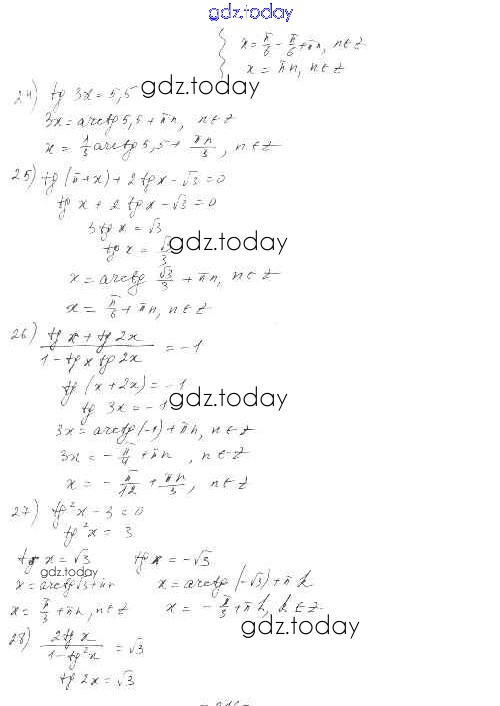 gdz.today
x = π/6 − π/6 + πn, n∈Z
x = πn, n∈Z
gdz.today
24) tg 3x = 5,5
3x = arctg 5,5 + πn, n∈Z
x = 1/3 arctg 5,5 + πn/3, n∈Z
25) tg (π + x) + 2 tg x − √3 = 0
tg x + 2 tg x − √3 = 0
3 tg x = √3
gdz.today
tg x = √3/3
x = arctg √3/3 + πn, n∈Z
x = π/6 + πn, n∈Z
26) (tg x + tg 2x)/(1 − tg x tg 2x) = −1
tg (x + 2x) = −1
gdz.today
tg 3x = −1
3x = arctg (−1) + πn, n∈Z
3x = −π/4 + πn, n∈Z
x = −π/12 + πn/3, n∈Z
27) tg²x − 3 = 0
tg²x = 3
tg x = √3 tg x = −√3
gdz.today
x = arctg √3 + πn x = arctg (−√3) + πk
x = π/3 + πn, n∈Z x = −π/3 + πk, k∈Z
gdz.today
28) 2 tg x/(1 − tg²x) = √3
tg 2x = √3